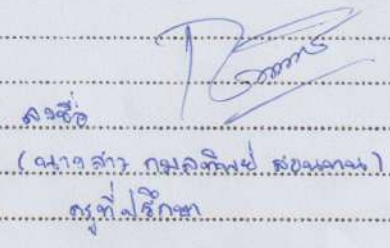 ลงชื่อ
(นางสาว กมลทิพย์ สอนทาน)
ครูที่ปรึกษา